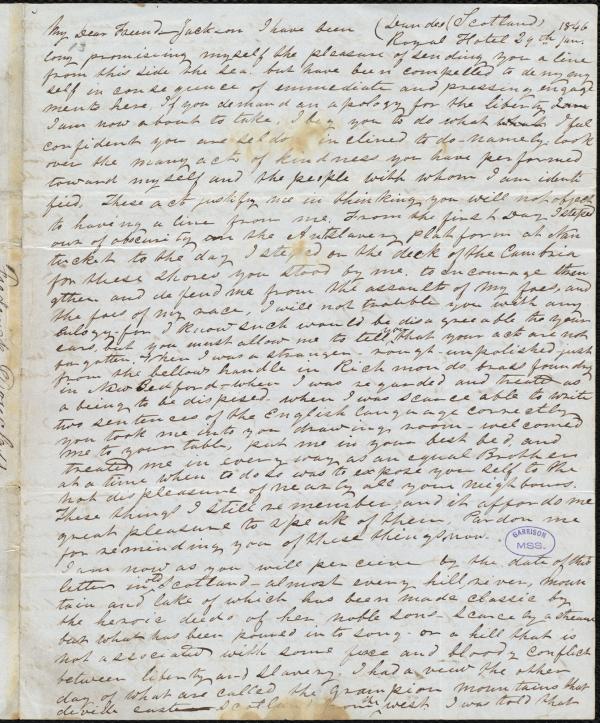 My Dear Friend Jackson I have been (Dundee (Scotland) 1846
13 Royal Hotel 29th Jan.
long promising myself the pleasure of sending you a line
from this side the sea. but have been compelled to deny my
self in consequence of emmediate and pressing engage
ments here. If you demand an apology for the liberty
I am now about to take, I beg you to do what I feel
confident you are seldom inclined to do – namely – look
over the many acts of kindness you have performed
toward myself and the people with whom I am identi
fied. These act justify me in thinking you will not object
to having a line from me. From the first day I steped
out of obscurity on the Antislavery platform at Nan
tucket to the day I steped on the deck of the Cambria
for these shores you stood by me. to encourage stren
gthen and defend me from the assaults of my foes, and
the foes of my race. I will not trouble you with any
eulogy – for I know such would be disagreeable to your
ears, but you must allow me to tell you that your act are not
forgotten. When I was a stranger – rough unpolished – just
from the bellows handle in Richmonds brass foundry
in New Bedford – when I was regarded and treated as
a being to be dispised – when I was scarce able to write
two sentences of the English language correctly
you took me into you drawing room – welcomed
me to your table, put me in your best bed, and
treated me in every way as an equal Brother
at a time when to do so was to expose your self to the
hot displeasure of nearly all your neighbours.
These things I still remember, and it affords me
great pleasure to speak of them, Pardon me
for reminding you of these things now.
GARRISON
MSS.
I am now as you will perceive by the date of this
letter in old Scotland – almost every hill, river, moun
tain and lake of which has been made classic by
the heroic deeds of her noble sons. scarcely a stream
but what has been poured into song – or a hill that is
not associated with some fierce and bloody conflict
between liberty and slavery. I had a view the other
day of what are called the grampion mountains that
divide east Scotland from the west. I was told that
Frederick Douglass